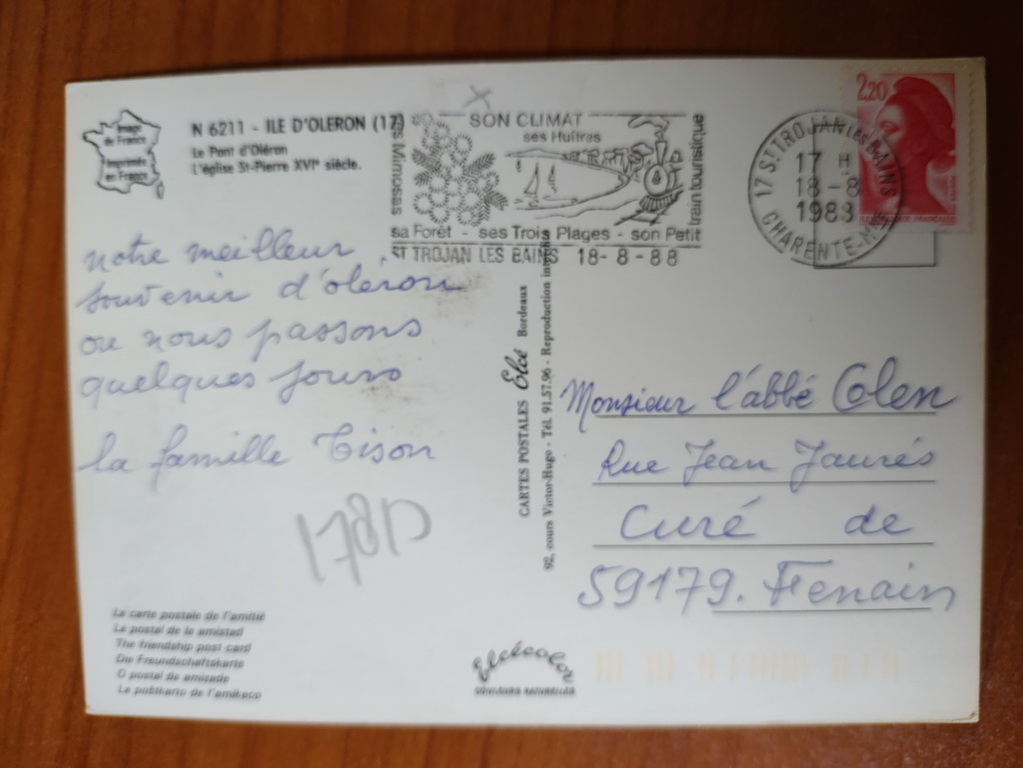 Image
de France
Imprimée
en France
N 6211 - ILE D'OLERON (17)
Le Pont d'Oléron
L'église St-Pierre XVIe siècle.
SON CLIMAT
ses Huîtres
ses Mimosas
train touristique
sa Forêt - ses Trois Plages - son Petit
ST TROJAN LES BAINS 18-8-88
17 ST TROJAN LES BAINS
17 H
18-8
1988
CHARENTE-Mme
2,20
notre meilleur
souvenir d'oléron
ou nous passons
quelques jours
la famille Tison
178D
CARTES POSTALES Elcé Bordeaux
92, cours Victor-Hugo - Tél. 91.57.96 - Reproduction
Monsieur l'abbé Colen
Rue Jean Jaurés
Curé de
59179. Fenain
La carte postale de l'amitié
La postal de la amistad
The friendship post card
Die Freundschaftskarte
O postal de amizade
La poŝtkarto de l'amikeco
Elcécolor
COULEURS NATURELLES